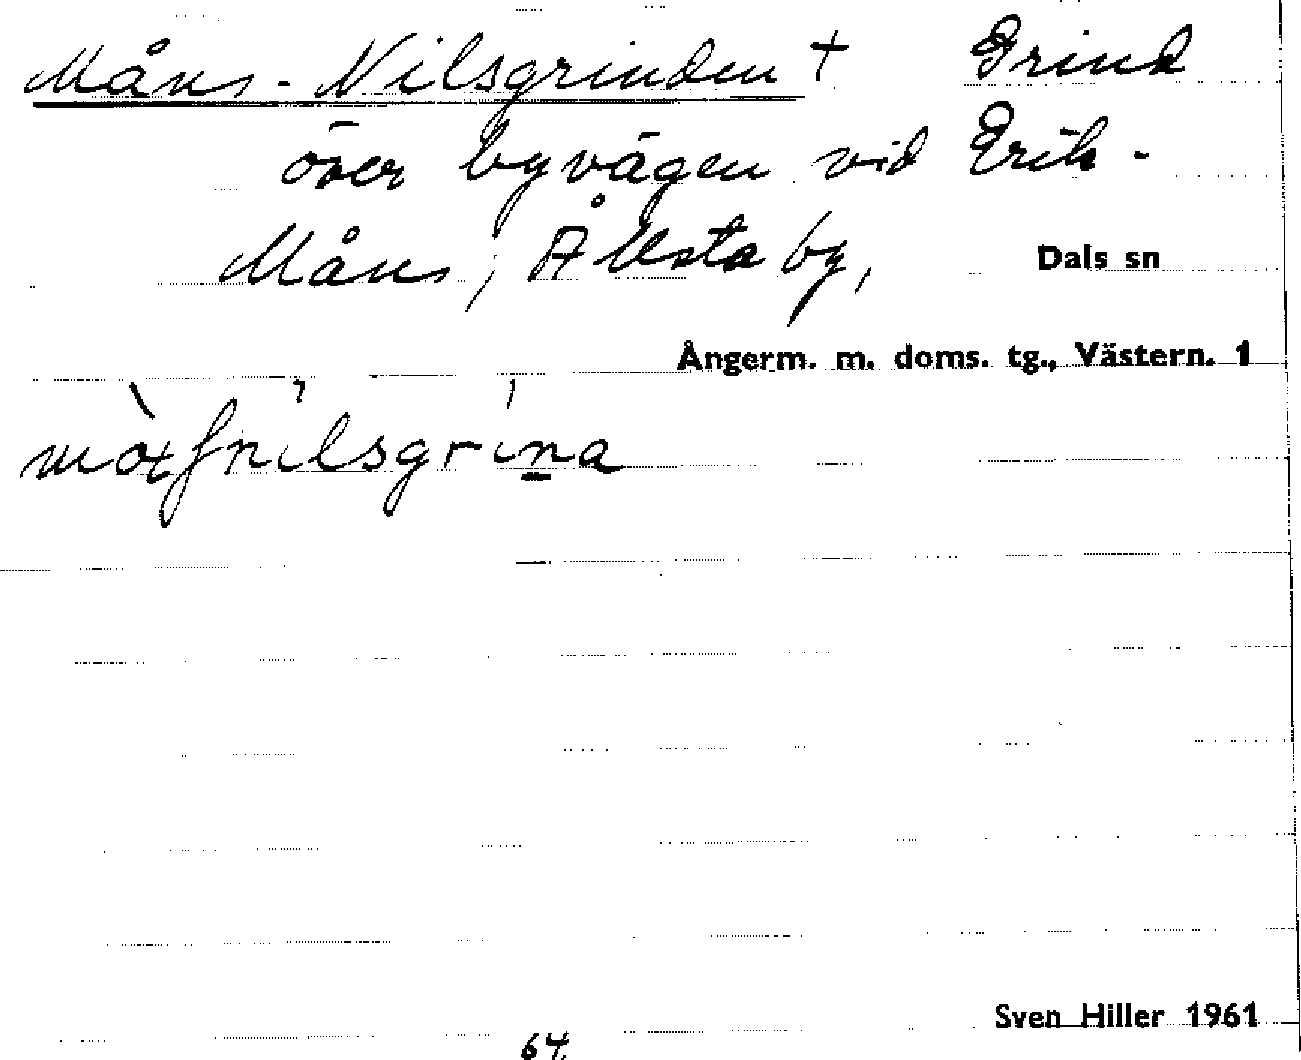 Måns-Nilsgrinden + Grind
över byvägen vid Erik-
Måns, Ållsta by, Dals sn
Ångerm. m. doms. tg., Västern. 1
Sven Hiller 1961
64.